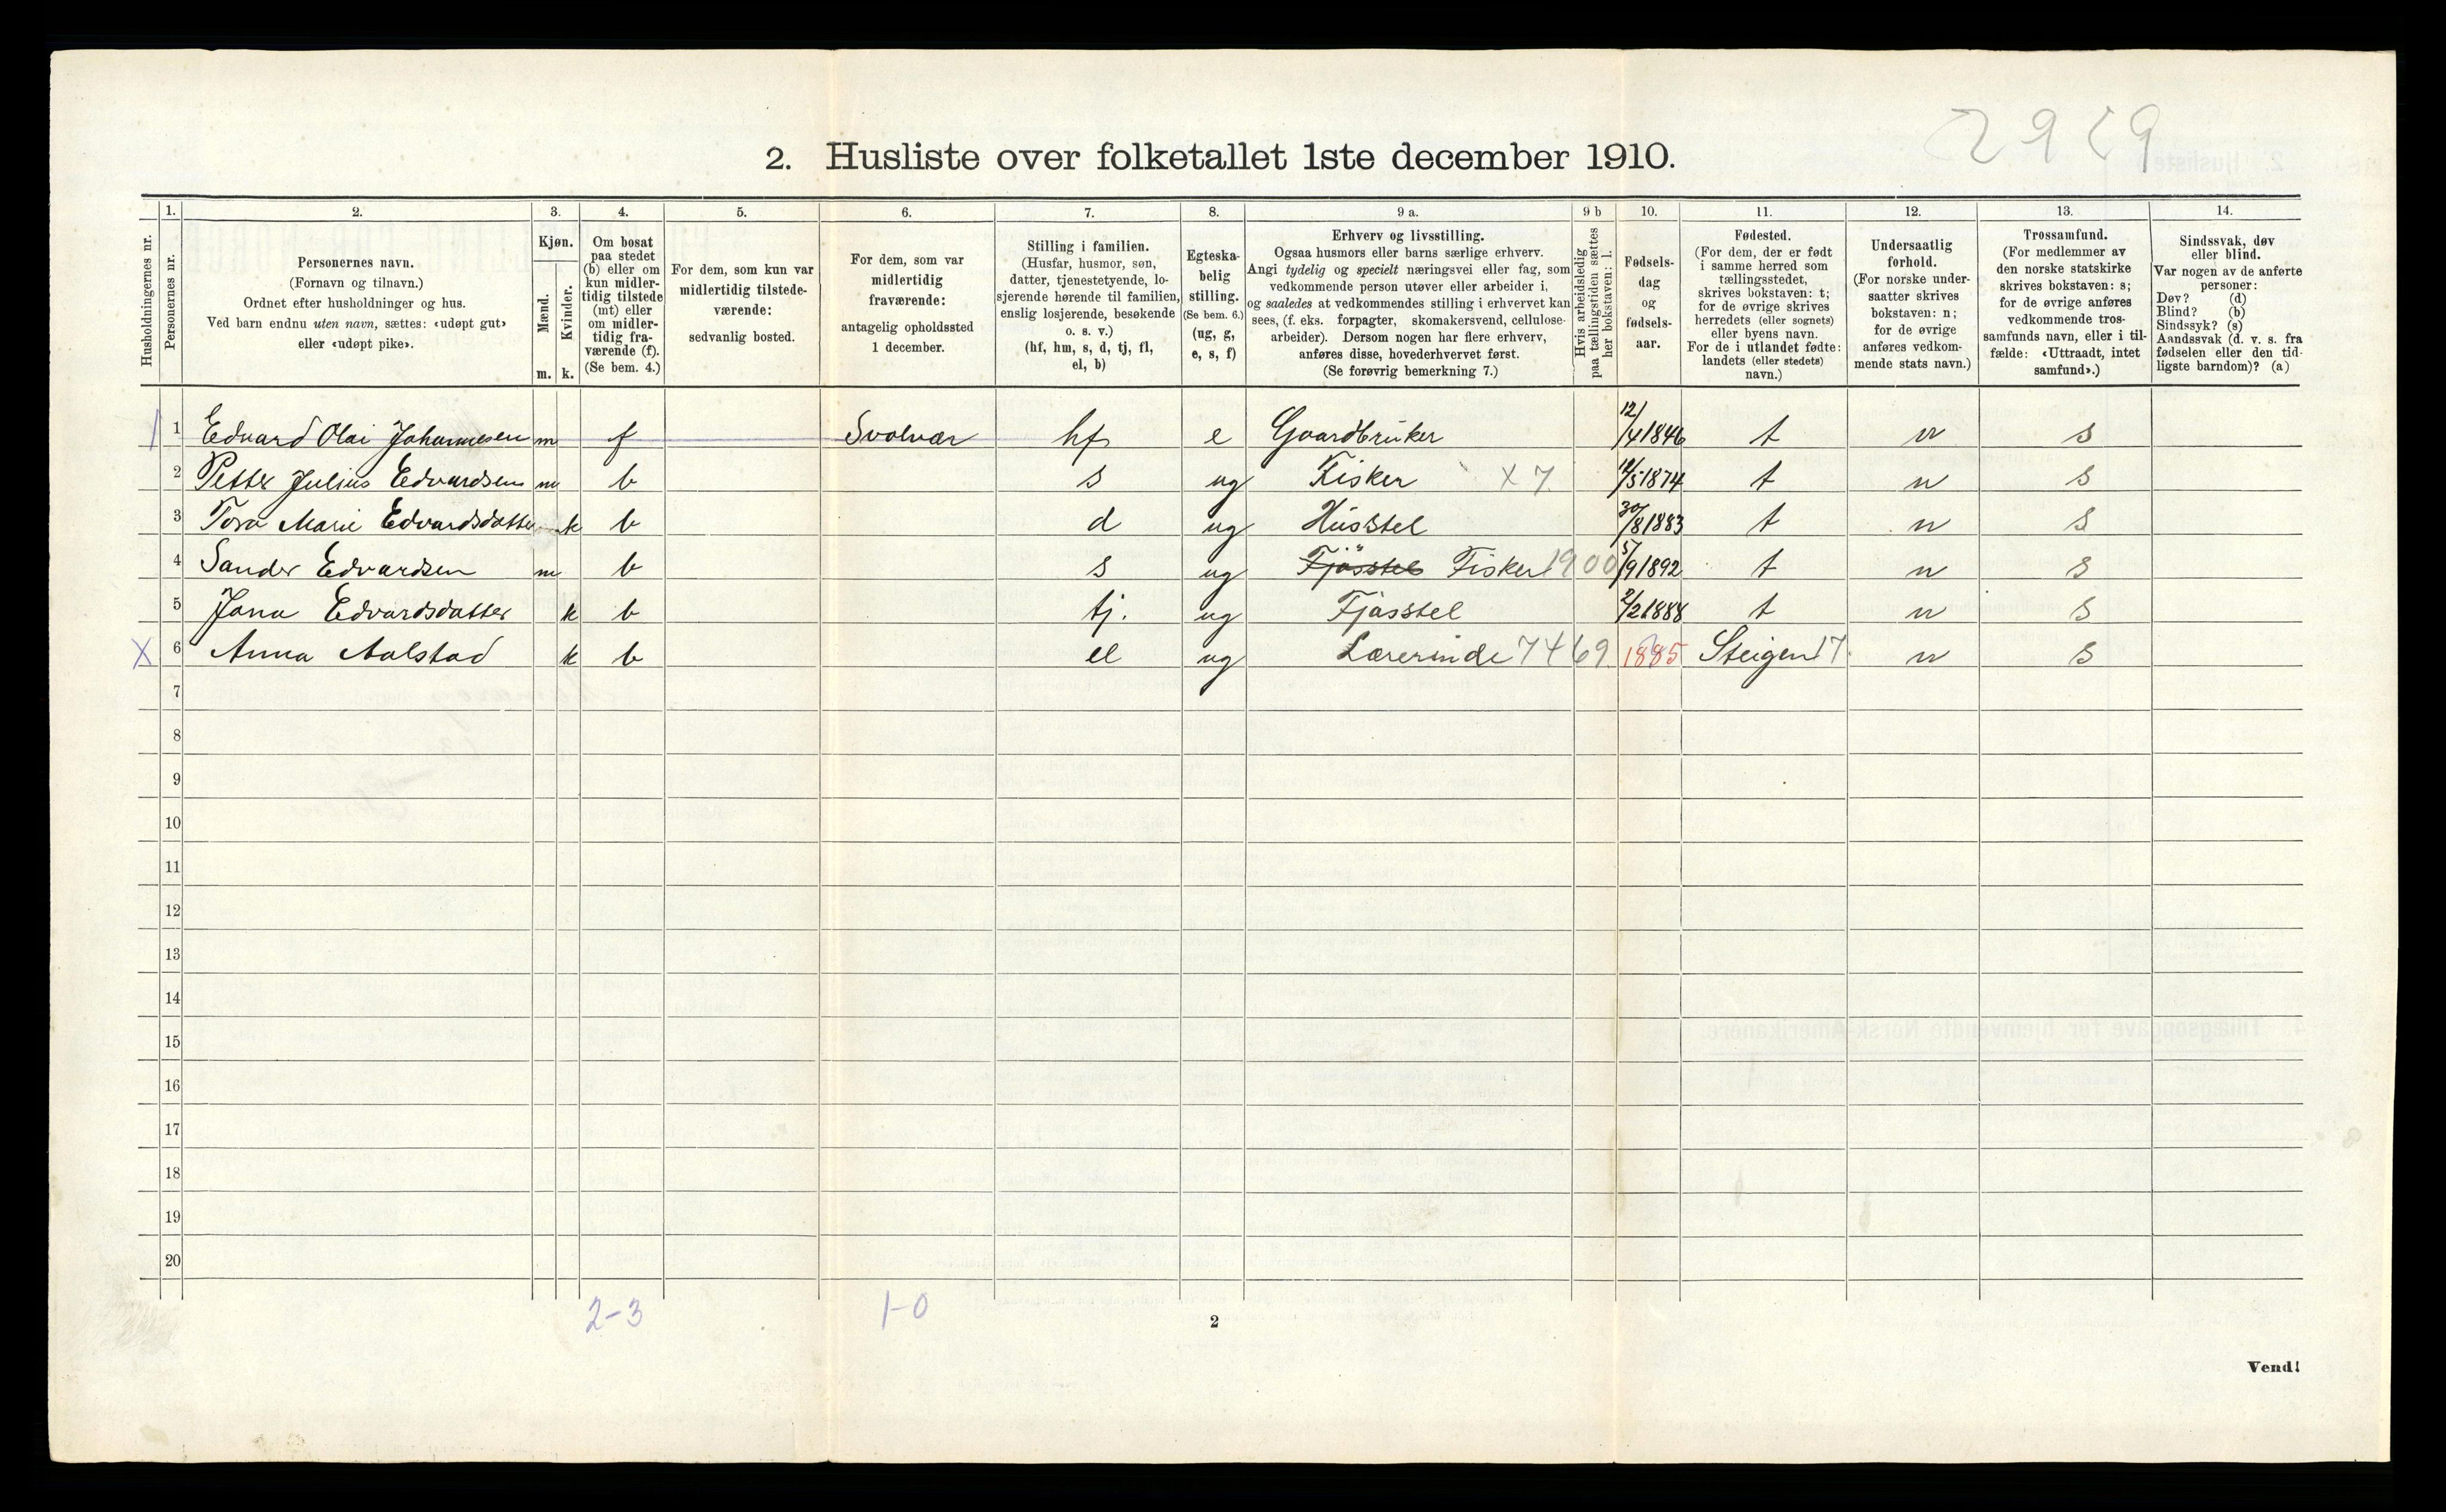 2929
2. Husliste over folketallet 1ste december 1910.
Husholdningernes nr.
1. Personernes nr.
2. Personernes navn.
(Fornavn og tilnavn.)
Ordnet efter husholdninger og hus.
Ved barn endnu uten navn, sættes: «udøpt gut»
eller «udøpt pike».
3. Kjøn.
Mænd. m.
Kvinder. k.
4. Om bosat
paa stedet
(b) eller om
kun midler-
tidig tilstede
(mt) eller
om midler-
tidig fra-
værende (f).
(Se bem. 4.)
5. For dem, som kun var
midlertidig tilstede-
værende:
sedvanlig bosted.
6. For dem, som var
midlertidig
fraværende:
antagelig opholdssted
1 december.
7. Stilling i familien.
(Husfar, husmor, søn,
datter, tjenestetyende, lo-
sjerende hørende til familien,
enslig losjerende, besøkende
o. s. v.)
(hf, hm, s, d, tj, fl,
el, b)
8. Egteska-
belig
stilling.
(Se bem. 6.)
(ug, g,
e, s, f)
9 a. Erhverv og livsstilling.
Ogsaa husmors eller barns særlige erhverv.
Angi tydelig og specielt næringsvei eller fag, som
vedkommende person utøver eller arbeider i,
og saaledes at vedkommendes stilling i erhvervet kan
sees, (f. eks. forpagter, skomakersvend, cellulose-
arbeider). Dersom nogen har flere erhverv,
anføres disse, hovederhvervet først.
(Se forøvrig bemerkning 7.)
9 b Hvis arbeidsledig
paa tællingstiden sættes
her bokstaven: l.
10. Fødsels-
dag
og
fødsels-
aar.
11. Fødested.
(For dem, der er født
i samme herred som
tællingsstedet,
skrives bokstaven: t;
for de øvrige skrives
herredets (eller sognets)
eller byens navn.
For de i utlandet fødte:
landets (eller stedets)
navn.)
12. Undersaatlig
forhold.
(For norske under-
saatter skrives
bokstaven: n;
for de øvrige
anføres vedkom-
mende stats navn.)
13. Trossamfund.
(For medlemmer av
den norske statskirke
skrives bokstaven: s;
for de øvrige anføres
vedkommende tros-
samfunds navn, eller i til-
fælde: «Uttraadt, intet
samfund».)
14. Sindssvak, døv
eller blind.
Var nogen av de anførte
personer:
Døv? (d)
Blind? (b)
Sindssyk? (s)
Aandssvak (d. v. s. fra
fødselen eller den tid-
ligste barndom)? (a)
1 Edvard Olai Johannesen m f Svolvær hf e Gaardbruker 12/4 1846 t n s
2 Petter Julius Edvardsen m b s ug Fisker x 7 12/5 1874 t n s
3 Tora Marie Edvardsdatter k b d ug Husstel 30/8 1883 t n s
4 Sander Edvardsen m b s ug Fjøsstel Fisker 1900 5/9 1892 t n s
5 Jana Edvardsdatter k b tj. ug Fjøsstel 2/2 1888 t n s
X 6 Anna Aalstad k b el ug Lærerinde 7469 1885 Steigen 17 n s
7
8
9
10
11
12
13
14
15
16
17
18
19
20
2-3 1-0
2
Vend!